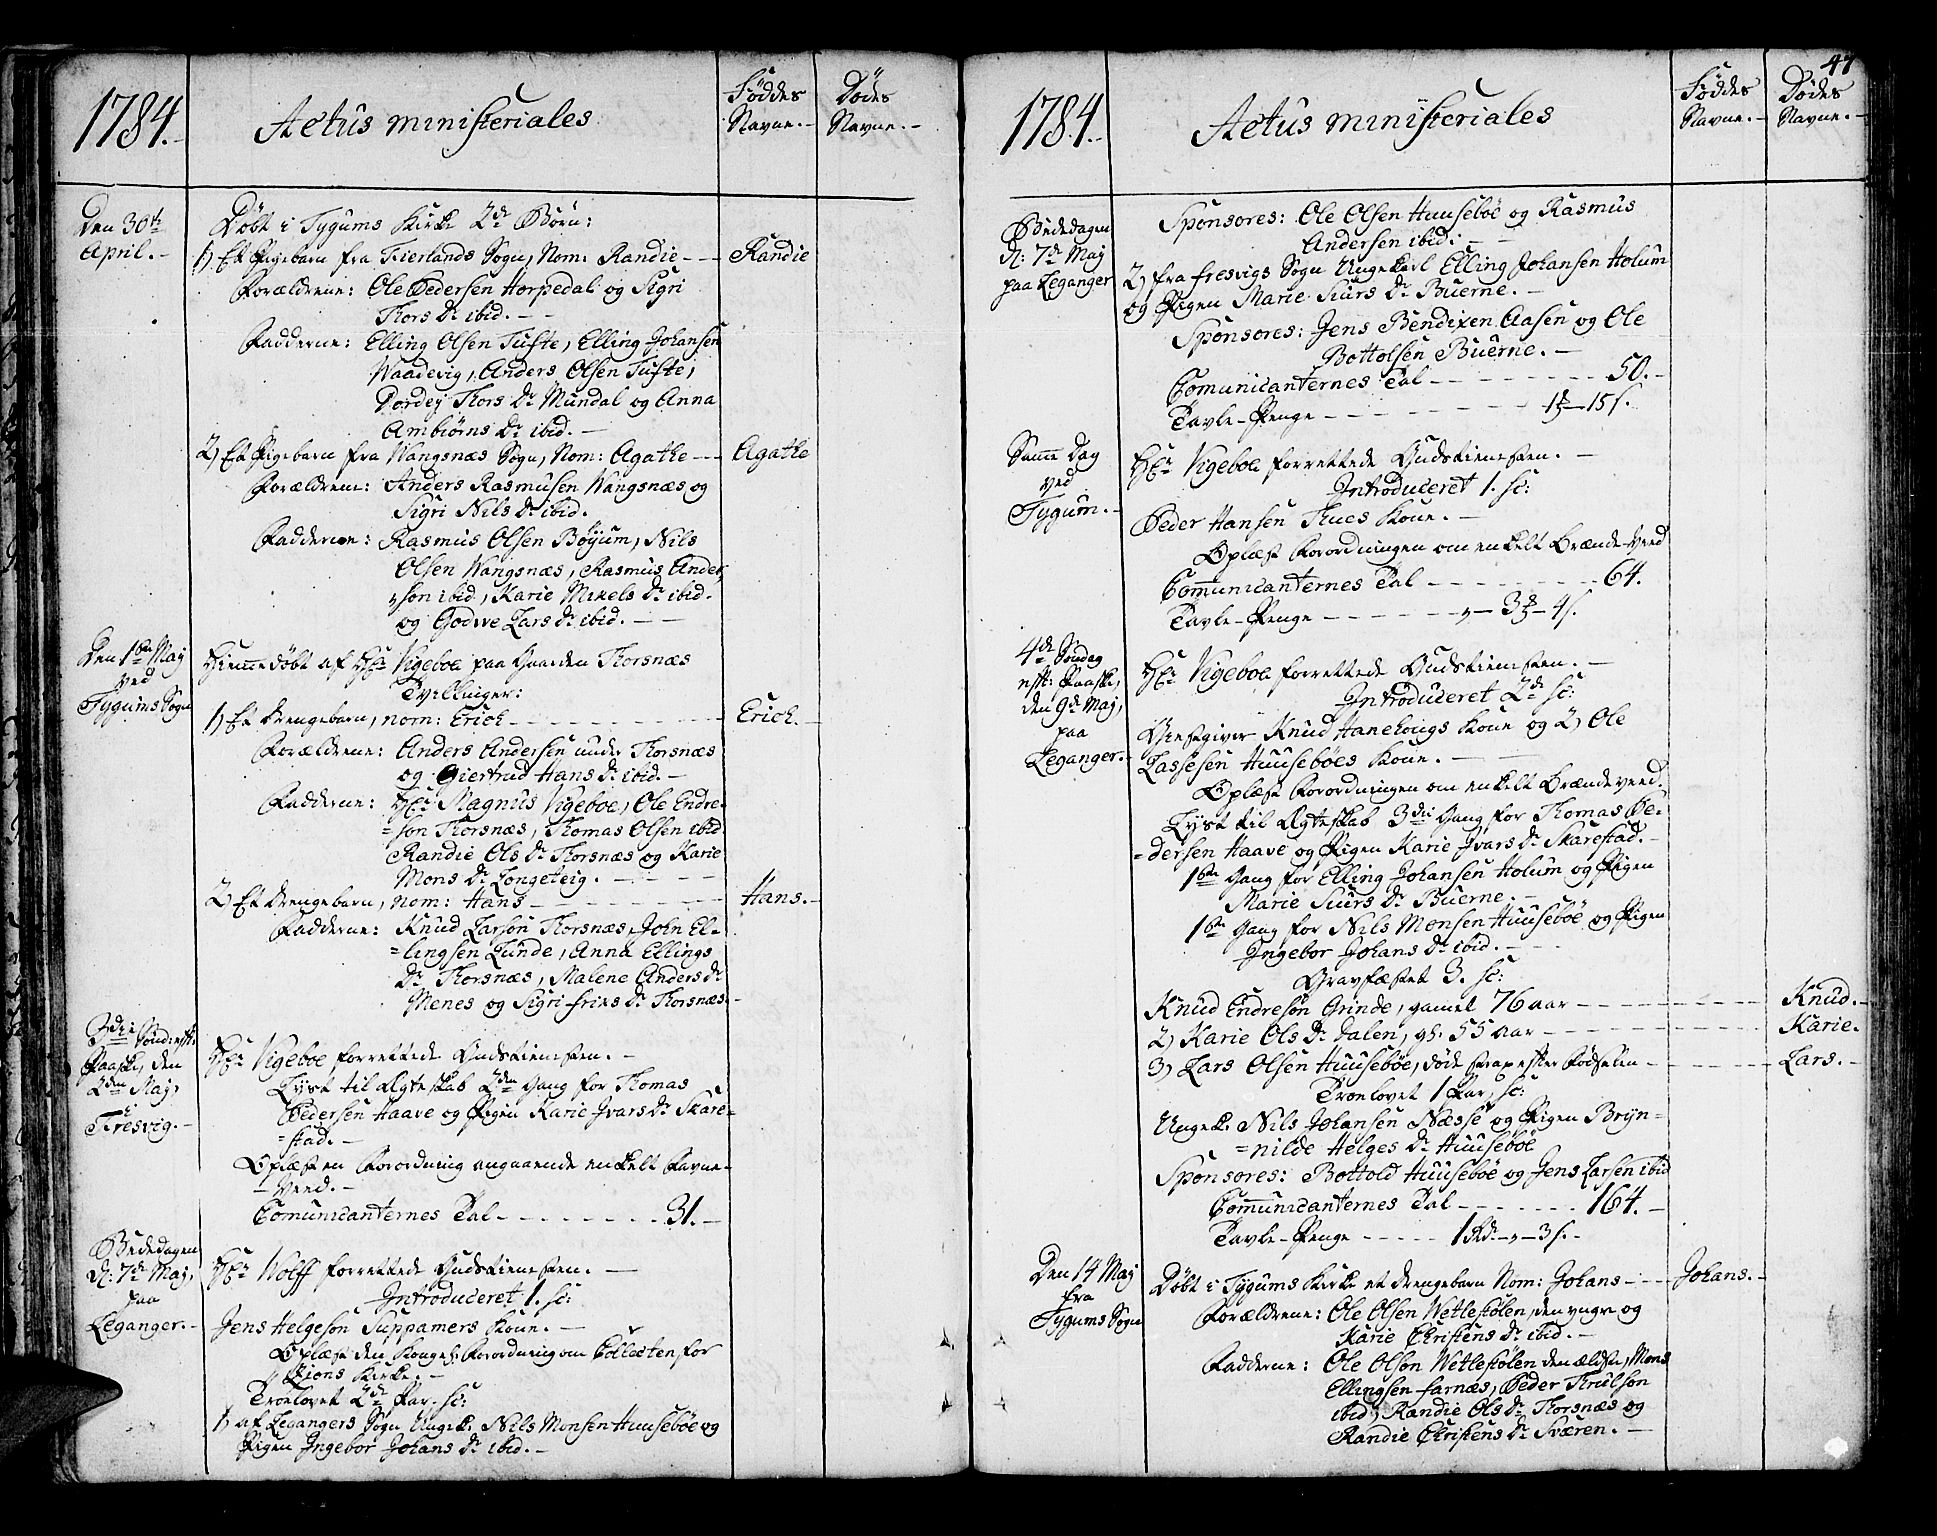 1784.
Actus ministeriales
Føddes
Navne.
Dödes
Navne.
Den 30te
April.
Døbt i Tygums Kirke 2de Børn:
1) Et Pigebarn fra Fierlands Sogn, Nom: Randie
Randie
Forældrene: Ole Pedersen Horpedal og Sigri
Thors Dr ibid.
Fadderne: Elling Olsen Tufte, Elling Johansen
Waadevig, Anders Olsen Tufte,
Dordej Thors Dr Mundal og Anna
Ambiörns Dr ibid.
2) Et Pigebarn fra Wangsnæs Sogn, Nom: Agathe
Agathe
Forældrene: Anders Rasmusen Wangsnæs og
Sigri Nils Dr ibid.
Fadderne: Rasmus Olsen Böyum, Nils
Olsen Wangsnæs, Rasmus Ander,
son ibid, Karie Mikels Dr ibid.
og Godve Lars Dr ibid.
Den 1ste Maj
ved
Tygums Sogn
Hiemedöbt af Hr: Vigeboe paa Gaarden Thorsnæs
Tvillinger:
1) Et Drengebarn, nom: Erich
Erich.
Forældrene: Anders Andersen under Thorsnæs
og Giertrud Hans Dr ibid.
Fadderne: Hr: Magnus Vigeboe, Ole Endre-
=son Thorsnæs, Thomas Olsen ibid
Randie Ols Dr Thorsnæs og Karie
Mons Dr Longeteig.
2) Et Drengebarn, nom: Hans
Hans.
Fadderne: Knud Larson Thorsnæs, John El-
=lingsen Lunde, Anna Ellings
Dr Thorsnæs, Malene Anders Dr
Menes og Sigri Frins Dr Thorsnæs.
3die Sönd: eft:
Paaske, den
2den Maj,
i
Fresvig.
Hr: Vigeboe forrettede Gudstienesten.
Lyst til Ægteskab 2den Gang for Thomas
Pedersen Haave og Pigen Karie Ivars Dr Skare=
=stad.
Oplæst en Forordning angaaende enkelt Favne-
-Veed.
Comunicanternes Tal 31.
Bededagen
d: 7de Maj,
paa
Leganger.
Hr: Wolff forrettede Gudstienesten.
Introduceret 1. sc:
Jens Helgesön Suppamers Kone.
Oplæst den Kongel: Forordning om Collecten for
Zions Kirke.
Trolovet 2de Par. sc:
1) af Legangers Sogn Ungk: Nils Monsen Huusebøe og
Pigen Ingebor Johans Dr ibid.
47
1784.
Actus ministeriales
Føddes
Navne.
Dödes
Navne.
Bededagen
d: 7de Maj
paa Leganger
Sponsores: Ole Olsen Huusebøe og Rasmus
Andersen ibid:
2) fra Fresvigs Sogn Ungekarl Elling Johansen Holum
og Pigen Marie Siurs Dr Buerne.
Sponsores: Jens Bendixen Aasen og Ole
Bottolsen Buerne.
Comunicanternes Tal 50.
Tavle-Penge 1 15 s.
Same Dag
ved
Tygum.
Hr: Vigeboe forrettede Gudstienesten.
Introduceret 1. sc:
Peder Hansen Thues Kone.
Oplæst Forordningen om enkelt Brænde-Veed
Comunicanternes Tal 64.
Tavle-Penge 3 4 s.
4de Söndag
efft: Paaske,
den 9de Maj,
paa
Leganger.
Hr: Vigeboe forrettede Gudstienesten.
Introduceret 2de sc:
Giestgiver Knud Hanehougs Kone og 2) Ole
Lassesen Huusebøes Kone.
Oplæst Forordningen om enkelt Brændeveed.
Lyst til Ægteskab 3die Gang for Thomas Pe-
=dersen Haave og Pigen Karie Ivars Dr Skarestad.
1ste Gang for Elling Johansen Holum og Pigen
Marie Siurs Dr Buerne.
1ste Gang for Nils Monsen Huusebøe og Pigen
Ingebor Johans Dr ibid.
Gravfæstet 3. sc:
Knud Endresøn Grinde, gamel 76 aar
Knud.
2) Karie Ols Dr Dalen, gl: 55 aar
Karie.
3) Lars Olsen Huusebøe, döde strax efter Födselen
Lars.
Trolovet 1 Par, sc:
Ungek: Nils Johansen Næsse og Pigen Bryn=
=nilde Helges Dr Huusebøe
Sponsores: Bottold Huusebøe og Jens Larsen ibid
Comunicanternes Tal 164.
Tavle-Penge 1 Rd. 3 s.
Den 14 Maj
fra
Tygums Sogn
Døbt i Tygums Kirke et Drengebarn Nom: Johans
Johans.
Forældrene: Ole Olsen Wetlestølen, den yngre og
Karie Christens Dr ibid.
Fadderne: Ole Olsøn Wetlestølen den ældste, Mons
Ellingsen Farnæs, Peder Thrulson
ibid, Randie Ols Dr Thorsnæs og
Randie Christens Dr Sværen.